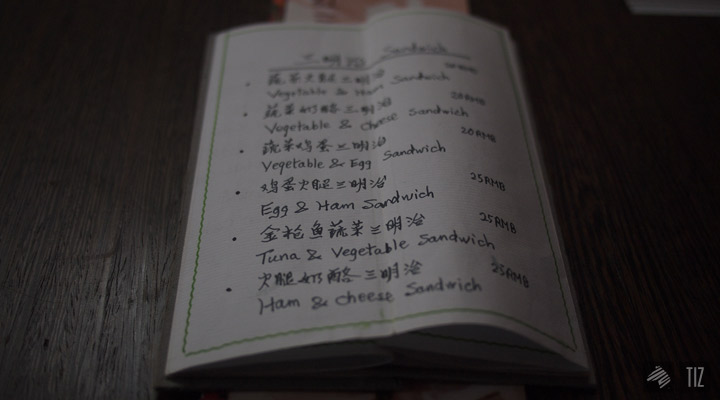 三明治 Sandwich
蔬菜火腿三明治
Vegetable & Ham Sandwich
蔬菜奶酪三明治 20RMB
Vogetable & Cheese Sandwich
蔬菜鸡蛋三明治 20RMB
Vegetable & Egg Sandwich
鸡蛋火腿三明治 25RMB
Egg & Ham Sandwich
金枪鱼蔬菜三明治 25RMB
Tuna & Vegetable Sandwich
火腿奶酪三明治 25RMB
Ham & Cheese Sandwich
TIZ